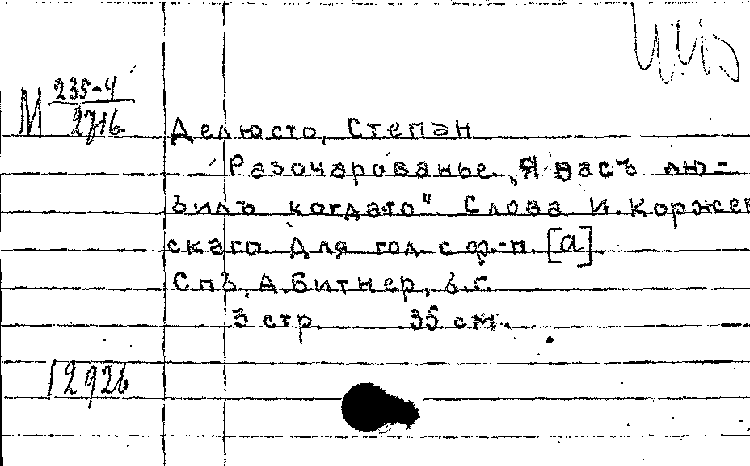 М 235-4
2716
Делюсто, Степан
Разочарованье „Я васъ лю-
билъ когдато" Слова И. Коржев
скаго. Для гол. с ф.-п. [a].
Спб, А. Битнер, б.г.
3 стр. 35 см.
12926